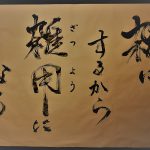 雑に
するから
ざつよう
雑用に
なる